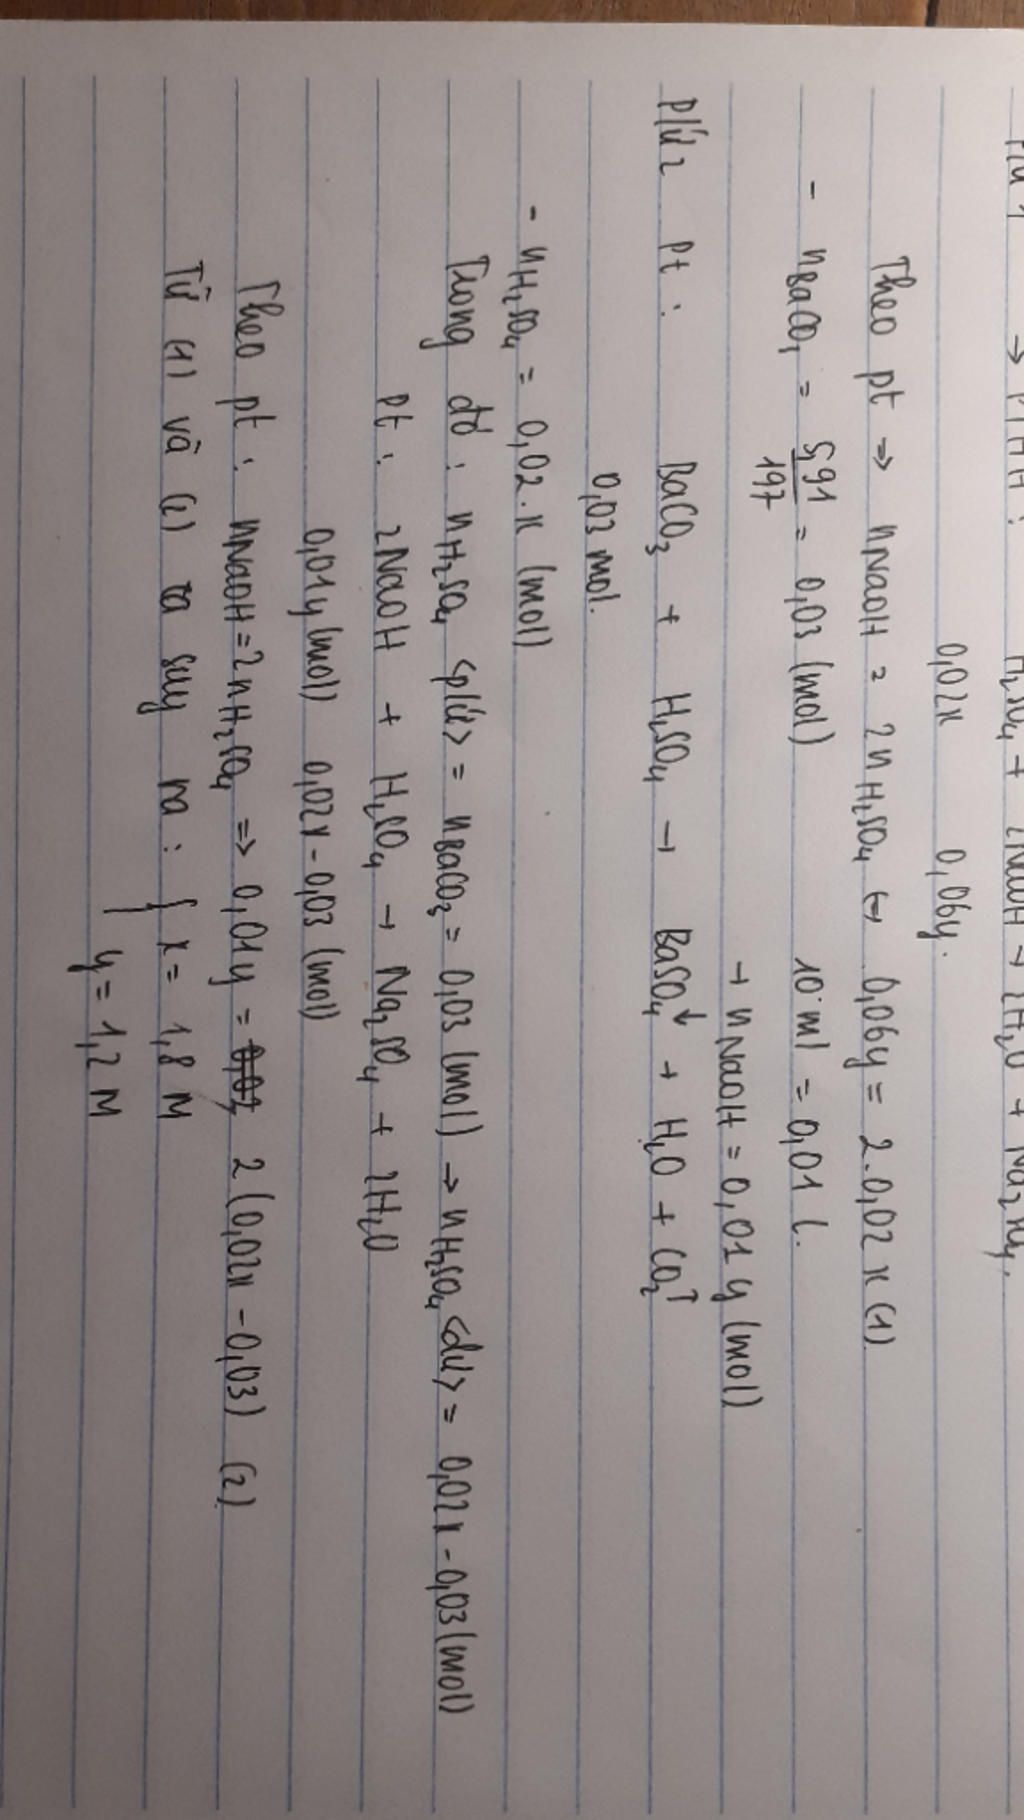 → PTHH : H₂SO₄ + 2NaOH → 2H₂O +
0,02x 0,06y.
Theo pt ⇒ nNaOH = 2nH₂SO₄ ↔ 0,06y = 2.0,02x (1)
- nBaCO₃ = 5,91/197 = 0,03 (mol) 10 ml = 0,01 l.
→ nNaOH = 0,01y (mol)
P/ứ 2 Pt : BaCO₃ + H₂SO₄ → BaSO₄↓ + H₂O + CO₂↑
0,03 mol.
- nH₂SO₄ = 0,02.x (mol)
Trong đó : nH₂SO₄ <p/ứ> = nBaCO₃ = 0,03 (mol) → nH₂SO₄ <dư> = 0,02x - 0,03 (mol)
Pt : 2NaOH + H₂SO₄ → Na₂SO₄ + 2H₂O
0,01y (mol) 0,02x - 0,03 (mol)
Theo pt : nNaOH = 2nH₂SO₄ ⇒ 0,01y = 2 (0,02x - 0,03) (2)
Từ (1) và (2) ta suy ra : { x = 1,8 M
y = 1,2 M